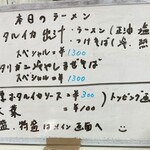 本日のラーメン
ホタルイカ出汁・ラーメン(正油 塩
・つけそば(冷. 熱
スペシャル=¥1300
タリガン冷やしまぜそば
スペシャル=¥1300
ホタルイカソース=¥300 トッピング
菜=¥100
メイン画面へ